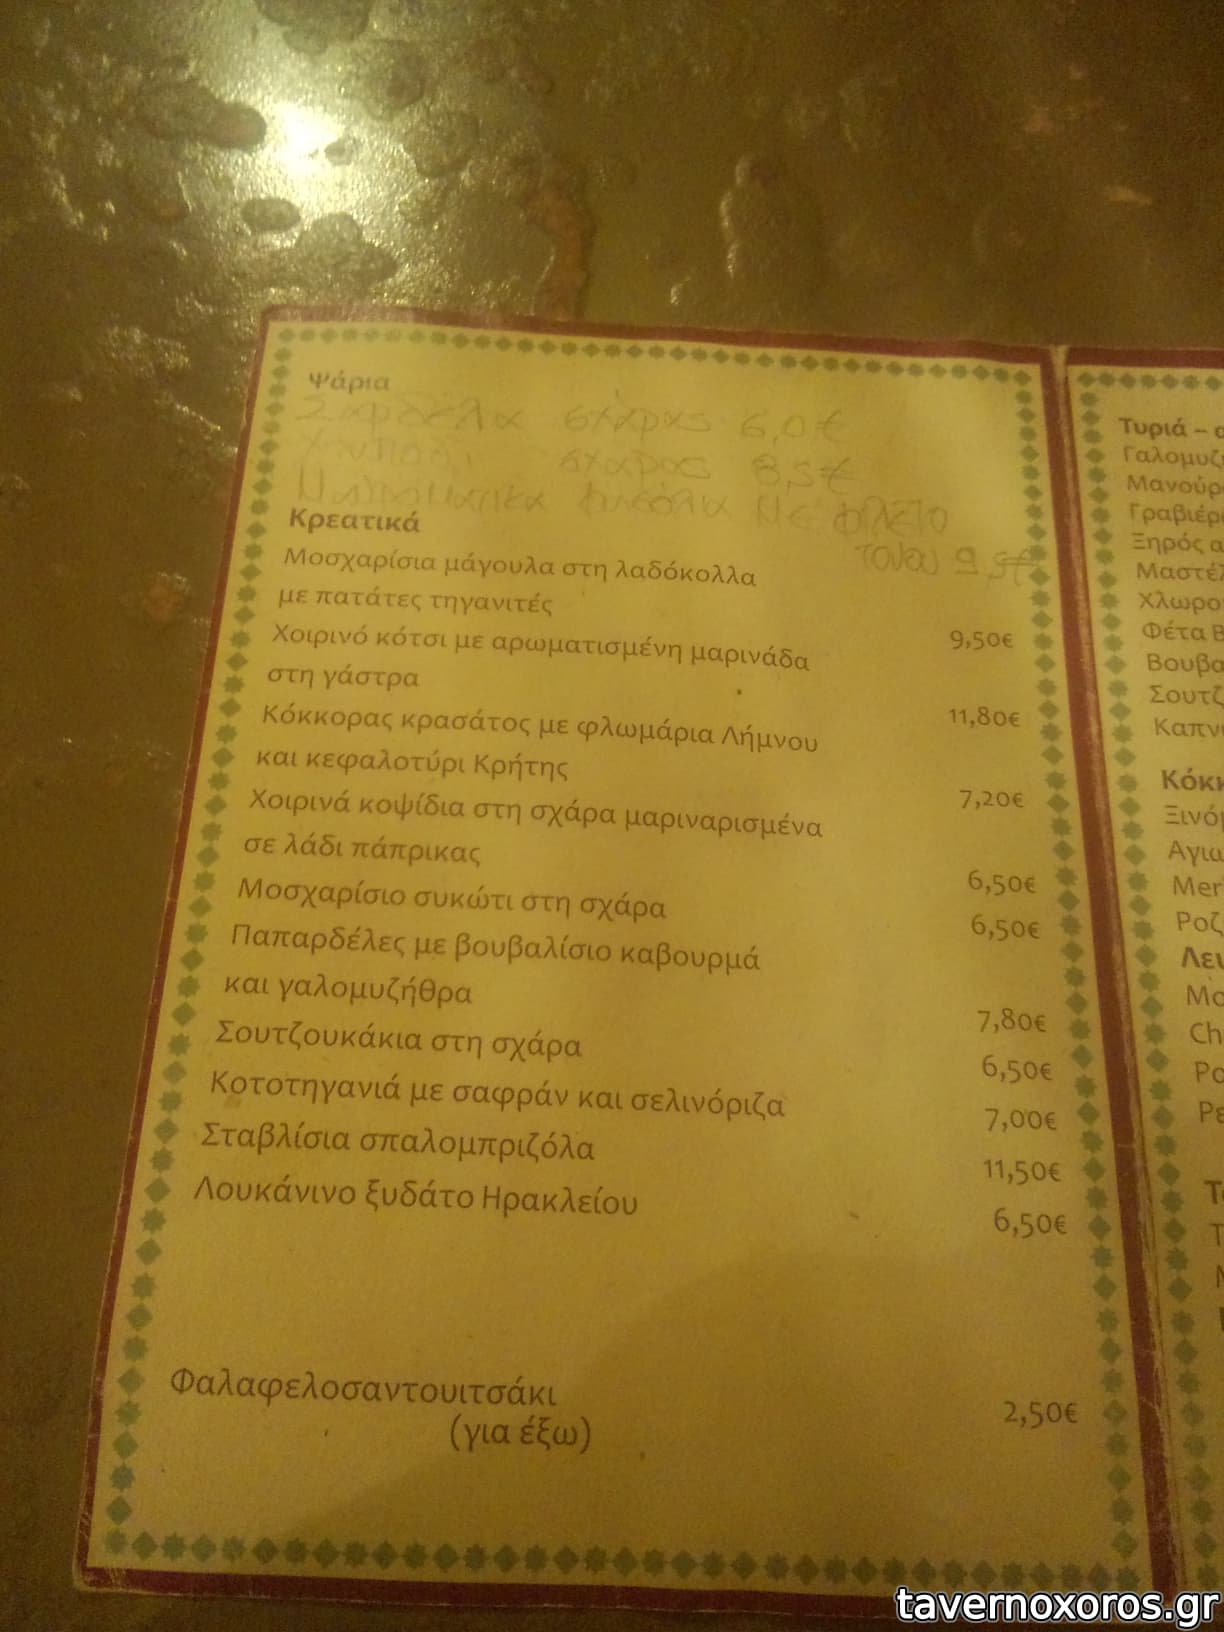 Ψάρια
Σαρδέλα σχάρας 6,0€
Χταπόδι σχάρας 8,5€
με φιλέτο
τόνου 9,5€
Κρεατικά
Μοσχαρίσια μάγουλα στη λαδόκολλα
με πατάτες τηγανιτές 9,50€
Χοιρινό κότσι με αρωματισμένη μαρινάδα
στη γάστρα 11,80€
Κόκκορας κρασάτος με φλωμάρια Λήμνου
και κεφαλοτύρι Κρήτης 7,20€
Χοιρινά κοψίδια στη σχάρα μαριναρισμένα
σε λάδι πάπρικας 6,50€
Μοσχαρίσιο συκώτι στη σχάρα 6,50€
Παπαρδέλες με βουβαλίσιο καβουρμά
και γαλομυζήθρα 7,80€
Σουτζουκάκια στη σχάρα 6,50€
Κοτοτηγανιά με σαφράν και σελινόριζα 7,00€
Σταβλίσια σπαλομπριζόλα 11,50€
Λουκάνινο ξυδάτο Ηρακλείου 6,50€
Φαλαφελοσαντουιτσάκι 2,50€
(για έξω)
Τυριά –
Ξηρός
Φέτα
tavernoxoros.gr